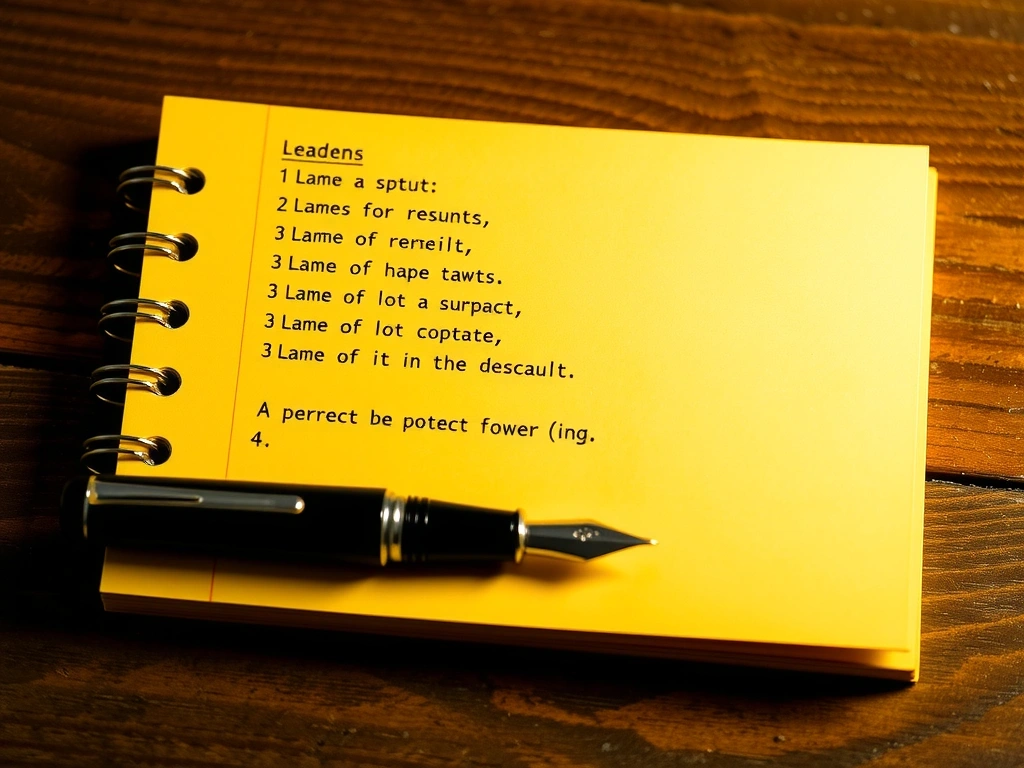 Leadens
1 Lame a sptut:
2 Lames for resunts,
3 Lame of rerreilt,
3 Lame of hape tawts.
3 Lame of lot a surpact,
3 Lame of lot coptate,
3 Lame of it in the descault.
A perrect be potect fower (ing.
4.